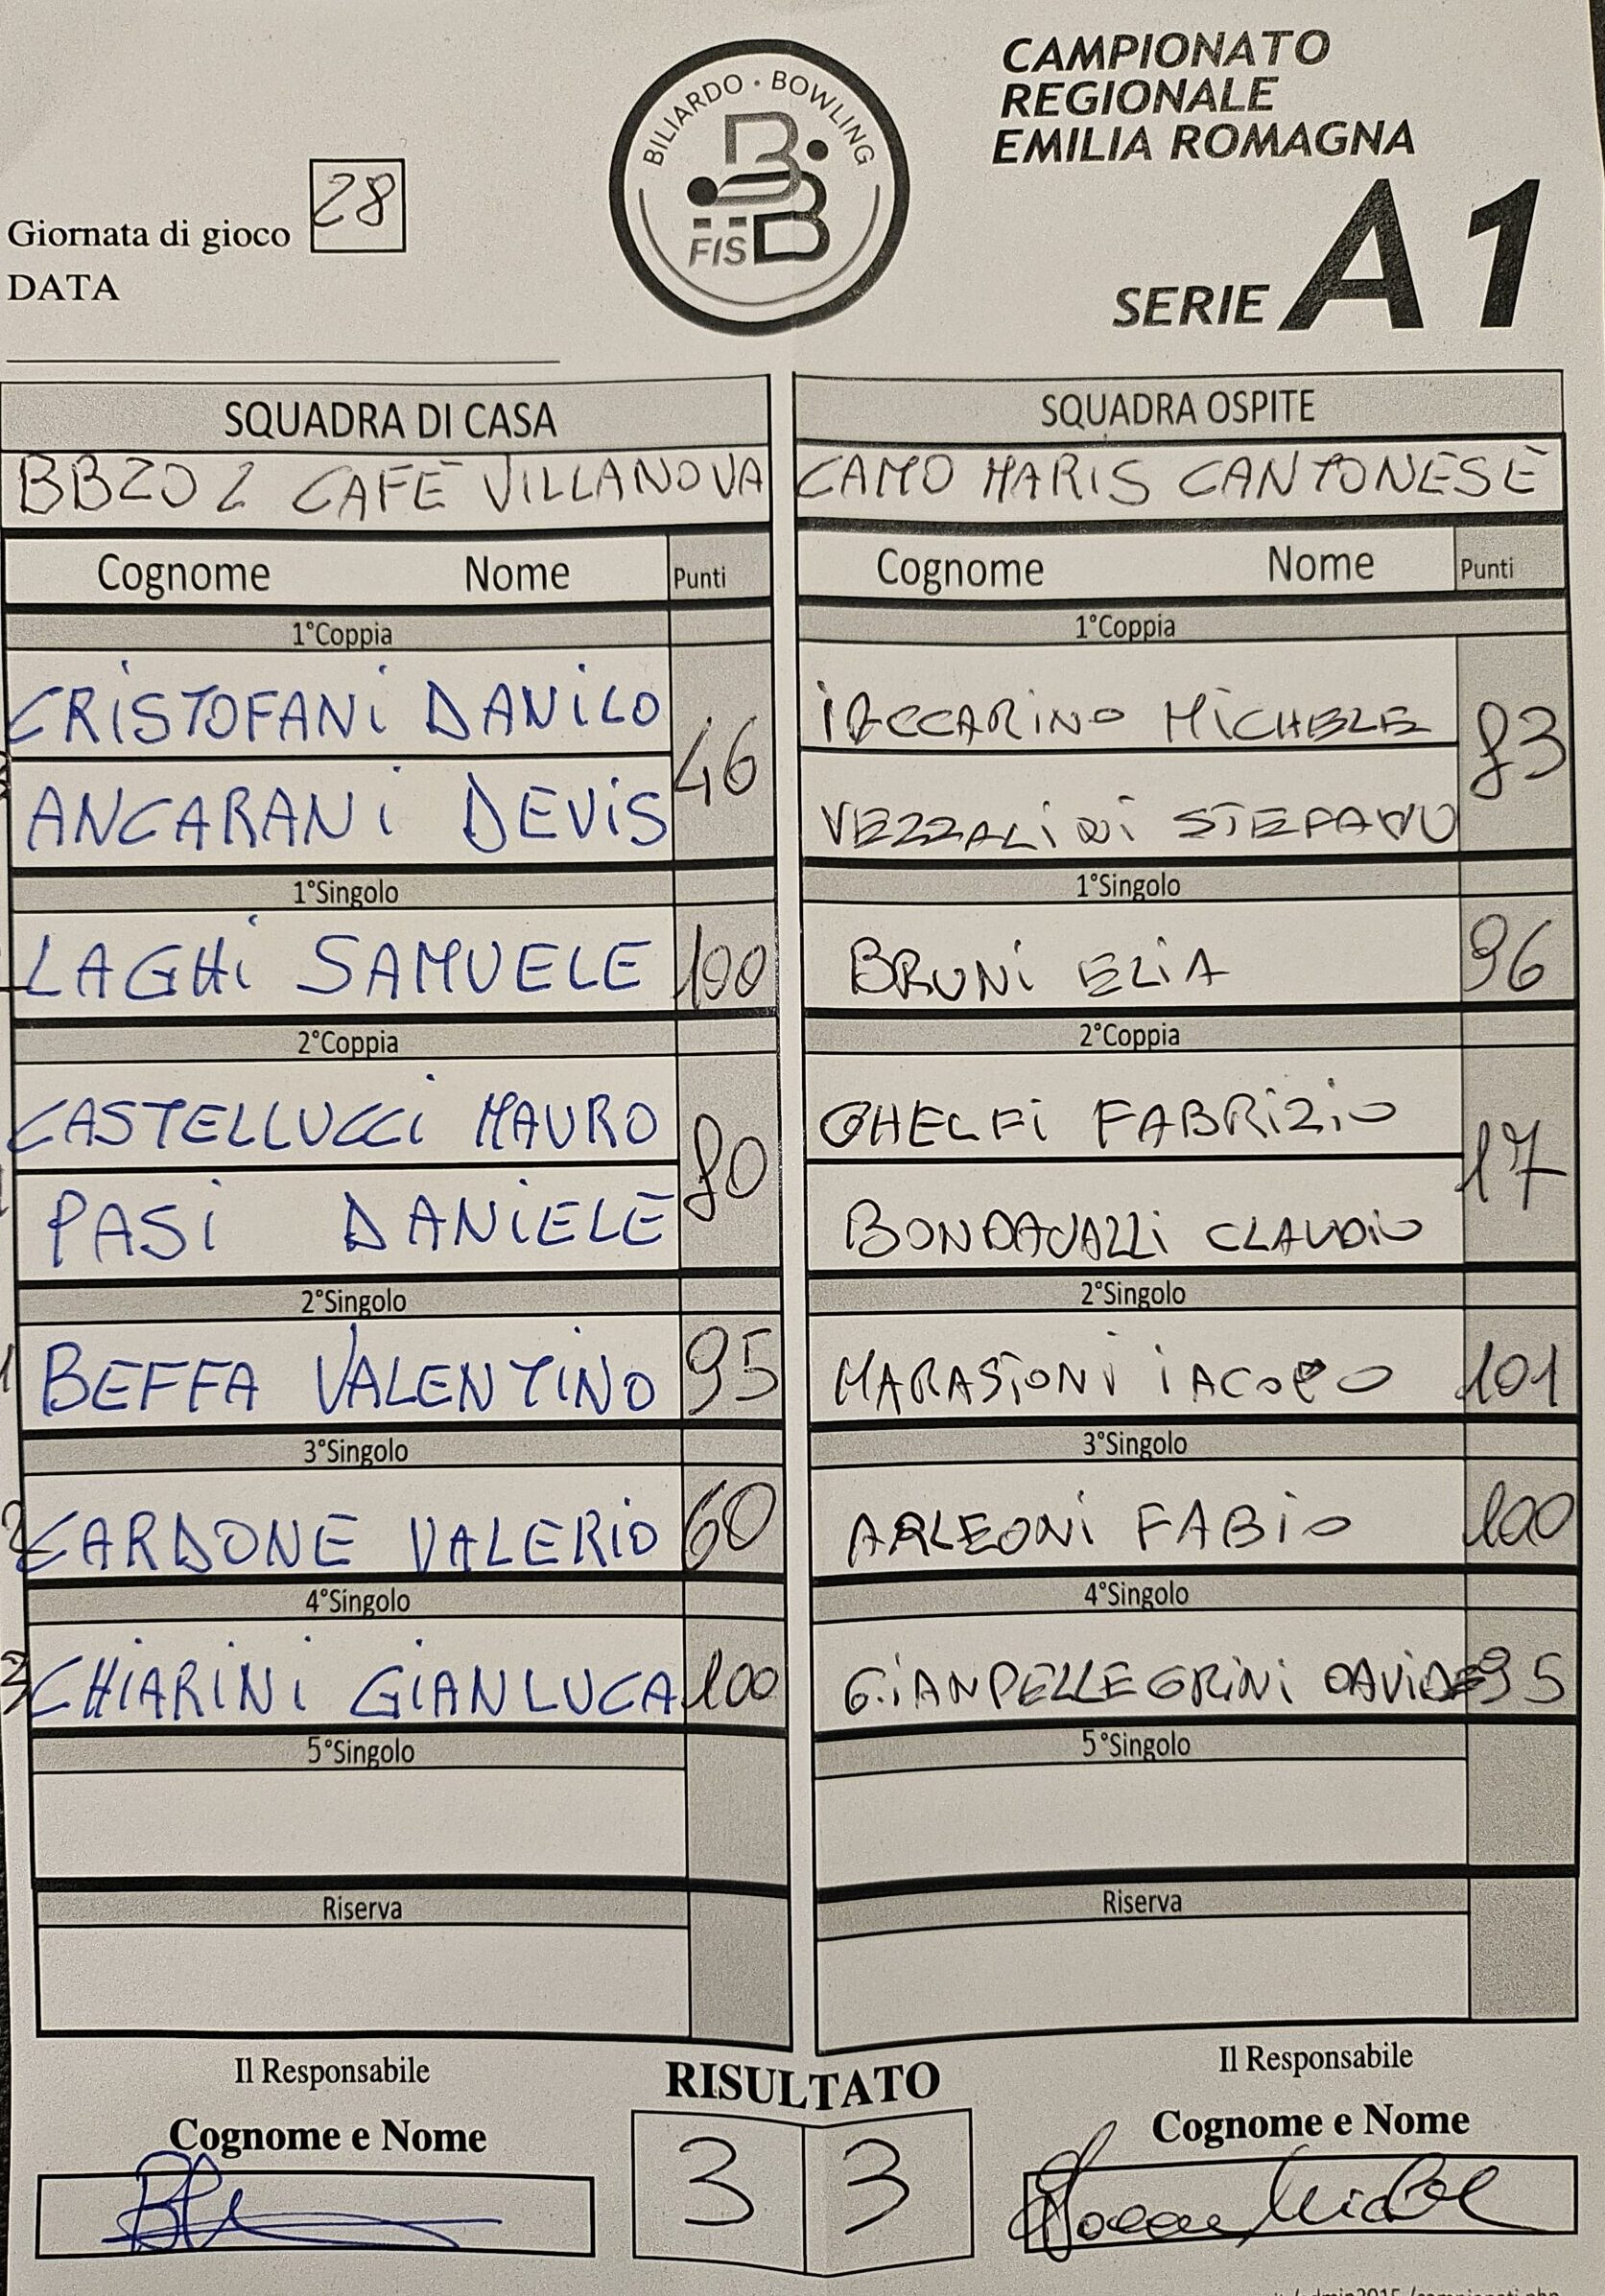 CAMPIONATO
REGIONALE
EMILIA ROMAGNA
SERIE A1
BILIARDO • BOWLING
FISBB
Giornata di gioco 28
DATA
SQUADRA DI CASA
BB202 CAFÈ VILLANOVA
Cognome Nome Punti
1°Coppia
CRISTOFANI DANILO
46
ANCARANI DEVIS
1°Singolo
LAGHI SAMUELE 100
2°Coppia
CASTELLUCCI MAURO
80
PASI DANIELE
2°Singolo
BEFFA VALENTINO 95
3°Singolo
CARDONE VALERIO 60
4°Singolo
CHIARINI GIANLUCA 100
5°Singolo
Riserva
SQUADRA OSPITE
CAMO MARIS CANTONESE
Cognome Nome Punti
1°Coppia
IACCARINO MICHELE
83
VEZZALINI STEFANO
1°Singolo
BRUNI ELIA 96
2°Coppia
GHELFI FABRIZIO
17
BONDAVALLI CLAUDIO
2°Singolo
MARASTONI IACOPO 101
3°Singolo
ARLEONI FABIO 100
4°Singolo
GIANPELLEGRINI DAVIDE 95
5°Singolo
Riserva
Il Responsabile
Cognome e Nome
RISULTATO
3 3
Il Responsabile
Cognome e Nome